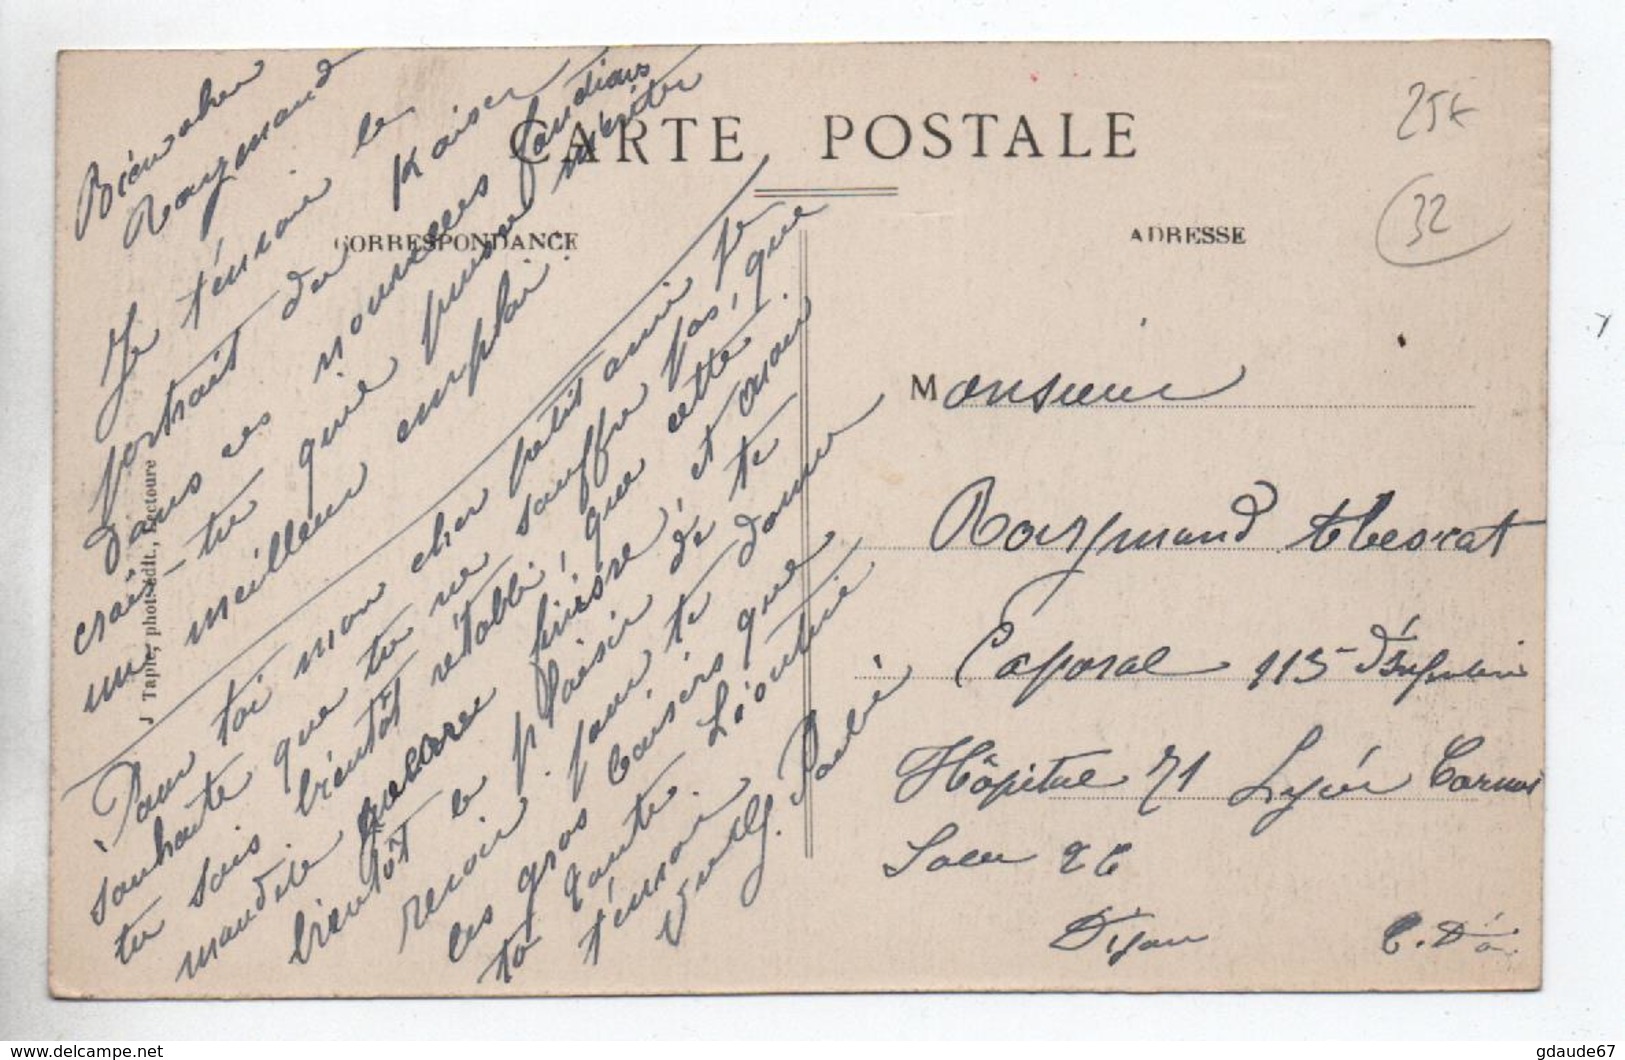 CARTE POSTALE
CORRESPONDANCE
ADRESSE
25€
32
Bien cher
Raymond
Je t'envoie le
portrait du Kaiser
dans ces nouvelles fonctions
crais-tu que puisse mériter
un meilleur emploi.
Pour toi mon cher petit ami je
souhaite que tu ne souffre pas, que
tu sois bientôt rétabli, que cette
maudite guerre finisse, et
bientôt le plaisir de te
revoir. pour te donner
les gros baisers que
ta tante Léontine
t'envoie
Tapie, phot.-édit., Lectoure
Monsieur
Raymond
Caporal 113e d'Infanterie
Hôpital 71 Lycée Carnot
Salle 26
Dijon C. D'or
www.delcampe.net
gdaude67